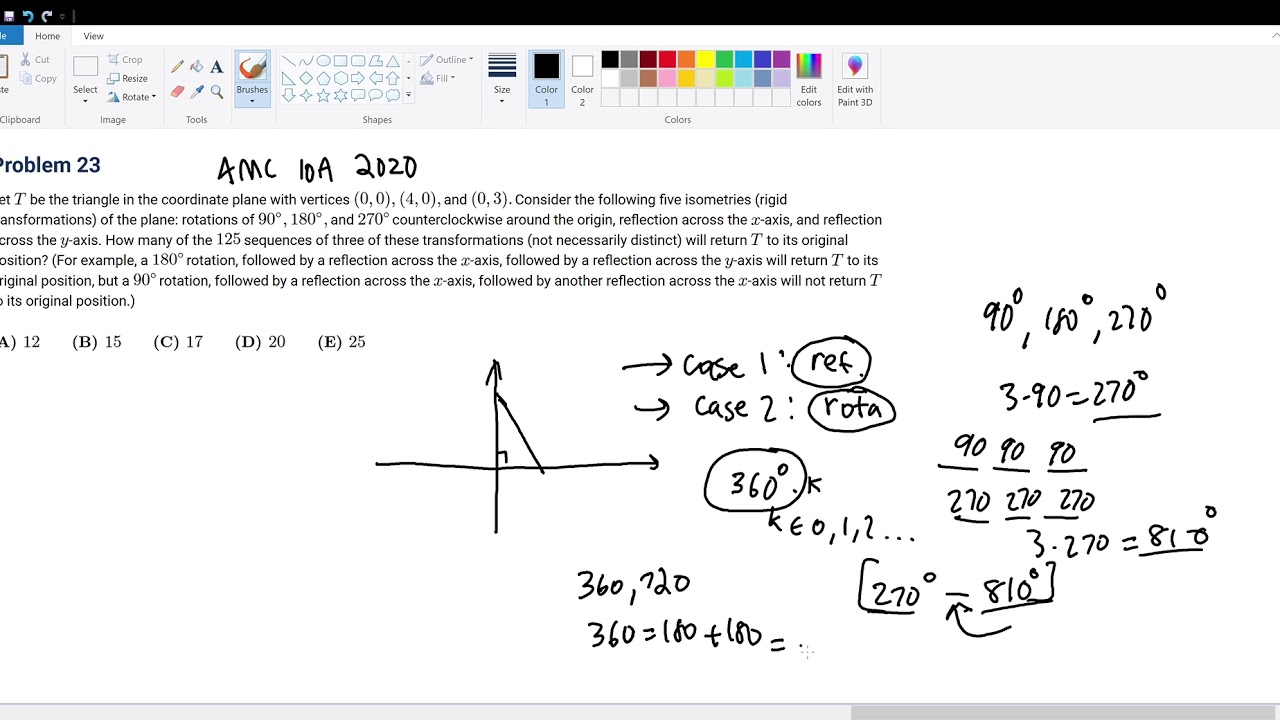 Home View
Cut
Copy
Clipboard
Select
Crop
Resize
Rotate
Image
A
Tools
Brushes
Shapes
Outline
Fill
Size
Color 1
Color 2
Colors
Edit colors
Edit with Paint 3D
Problem 23
AMC 10A 2020
et T be the triangle in the coordinate plane with vertices (0, 0), (4, 0), and (0, 3). Consider the following five isometries (rigid
ansformations) of the plane: rotations of 90°, 180°, and 270° counterclockwise around the origin, reflection across the x-axis, and reflection
cross the y-axis. How many of the 125 sequences of three of these transformations (not necessarily distinct) will return T to its original
osition? (For example, a 180° rotation, followed by a reflection across the x-axis, followed by a reflection across the y-axis will return T to its
riginal position, but a 90° rotation, followed by a reflection across the x-axis, followed by another reflection across the x-axis will not return T
o its original position.)
A) 12 (B) 15 (C) 17 (D) 20 (E) 25
→ Case 1: ref.
→ Case 2: rota
360° · k
k ∈ 0, 1, 2 ...
360, 720
360 = 180 + 180 = .
90°, 180°, 270°
3·90 = 270°
90 90 90
270 270 270
3·270 = 810°
[270° – 810°]